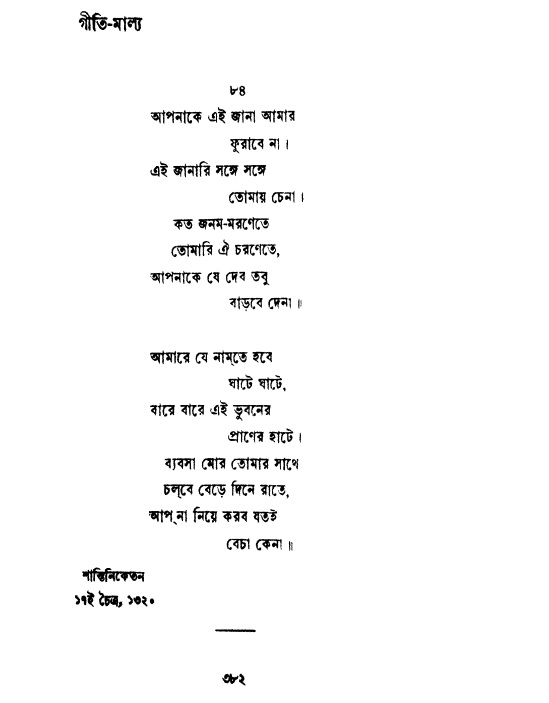 গীতি-মাল্য
৮৪
আপনাকে এই জানা আমার
ফুরাবে না।
এই জানারি সঙ্গে সঙ্গে
তোমায় চেনা।
কত জনম-মরণেতে
তোমারি ঐ চরণেতে,
আপনাকে যে দেব তবু
বাড়বে দেনা॥
আমারে যে নাম্‌তে হবে
ঘাটে ঘাটে,
বারে বারে এই ভুবনের
প্রাণের হাটে।
ব্যবসা মোর তোমার সাথে
চল্‌বে বেড়ে দিনে রাতে,
আপ্‌না নিয়ে করব যতই
বেচা কেনা॥
শান্তিনিকেতন
১৭ই চৈত্র, ১৩২০
৩৮২